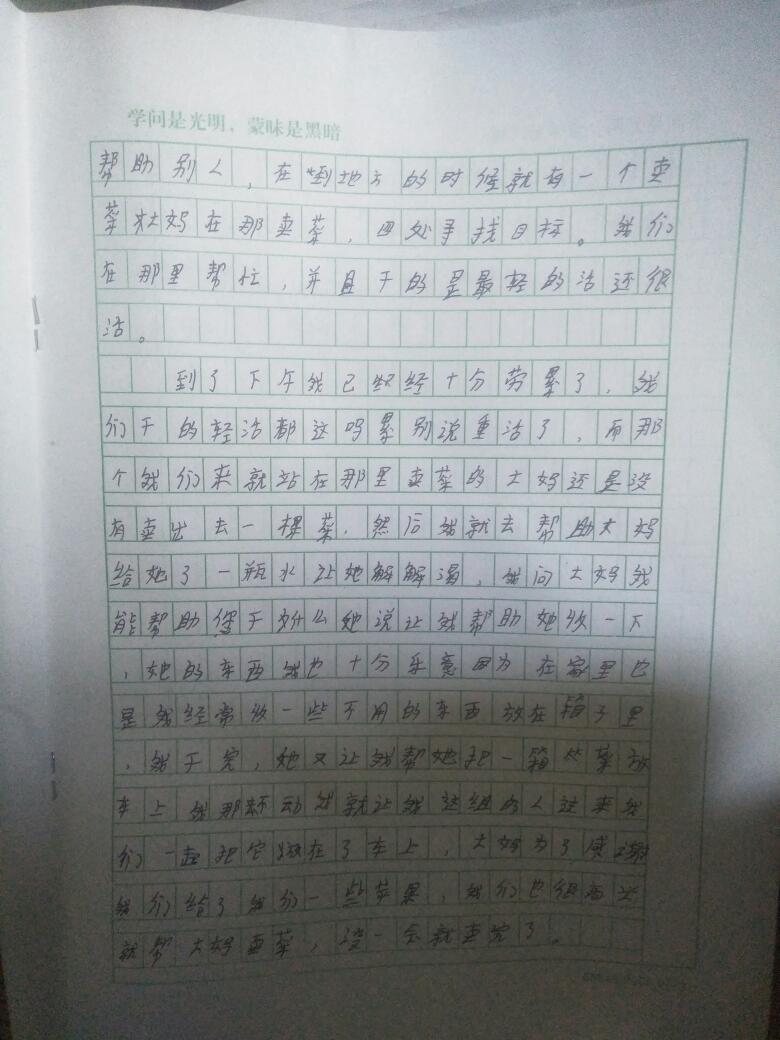 学问是光明，蒙昧是黑暗
帮助别人，在到地方的时候就有一个卖
菜大妈在那卖菜，四处寻找目标。我们
在那里帮忙，并且干的是最轻的活还很
活。
到了下午我已经十分劳累了，我
们干的轻活都这吗累别说重活了，而那
个我们来就站在那里卖菜的大妈还是没
有卖出去一棵菜，然后我就去帮助大妈
给她了一瓶水让她解解渴，我问大妈我
能帮助您干什么她说让我帮助她收一下
，她的东西我也十分乐意因为在家里也
是我经常收一些不用的东西放在箱子里
，我干完，她又让我帮她把一箱菜放
车上我那动我就让我这组的人过来我
们一起把它放在了车上，大妈为了感谢
我们给了我们一些苹果，我们也很
就帮大妈卖菜，没一会就卖完了。